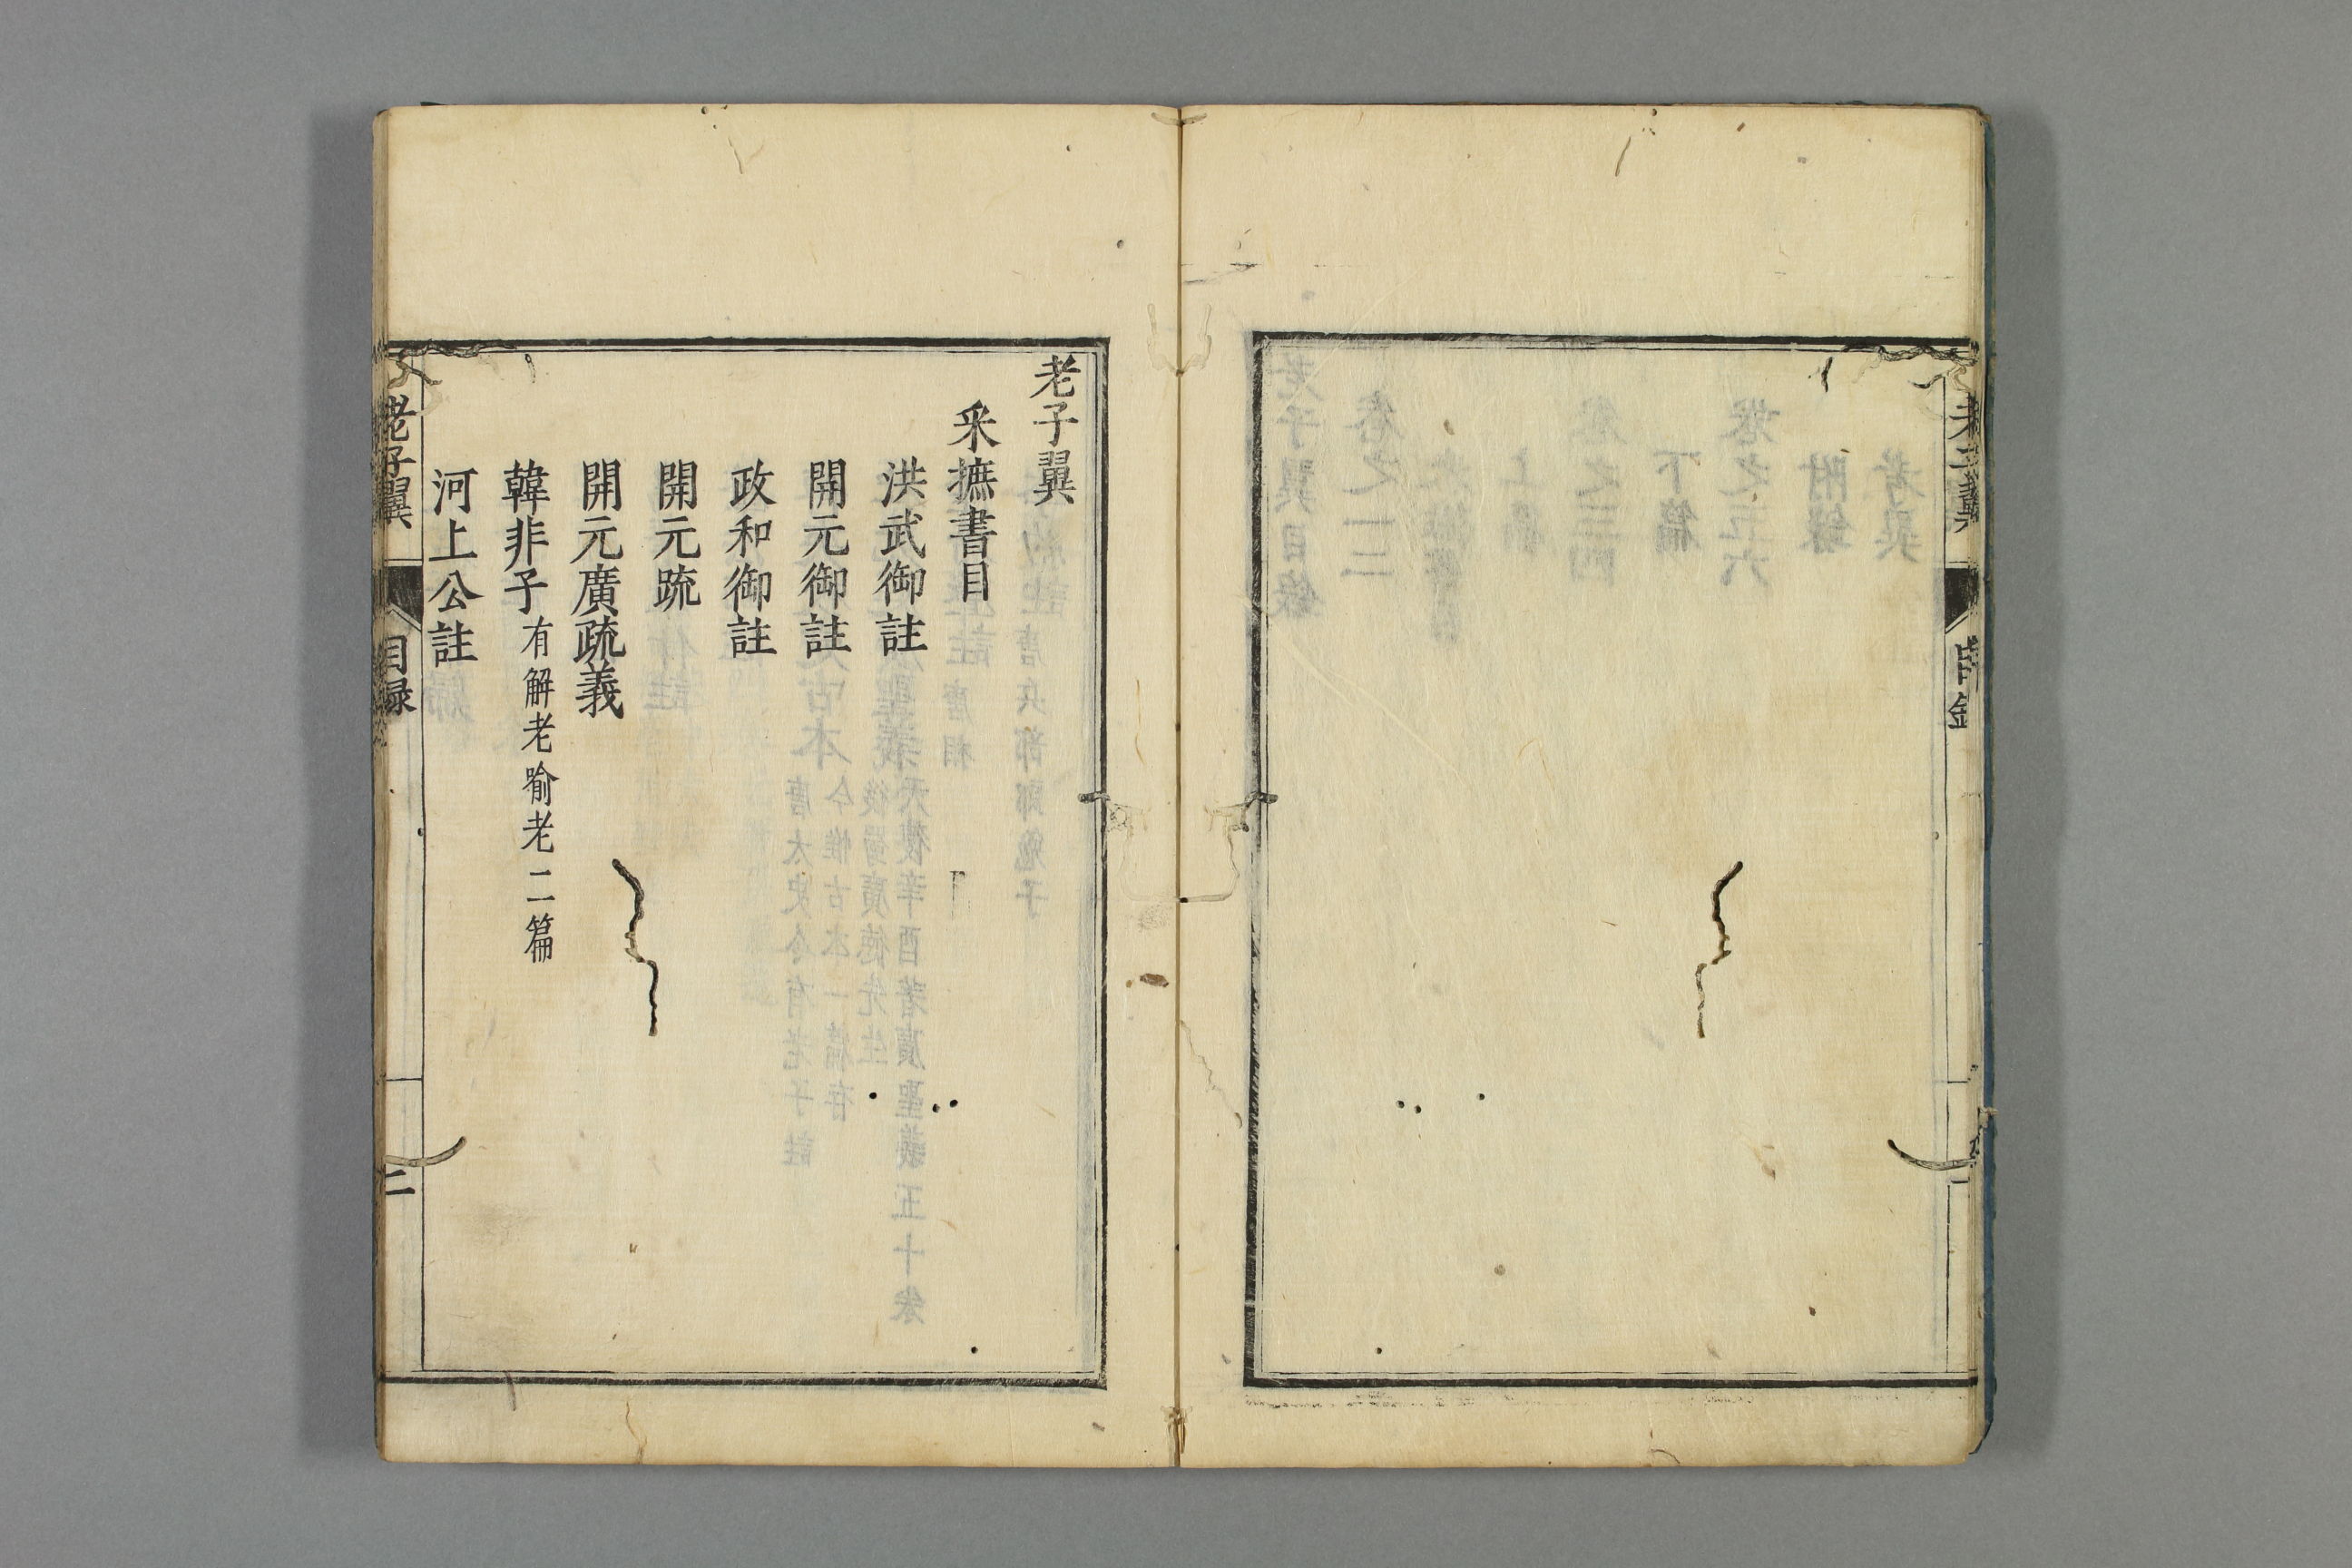 老子翼
采摭書目
洪武御註
開元御註
政和御註
開元疏
開元廣疏義
韓非子有解老喻老二篇
河上公註
老子翼 目録 二